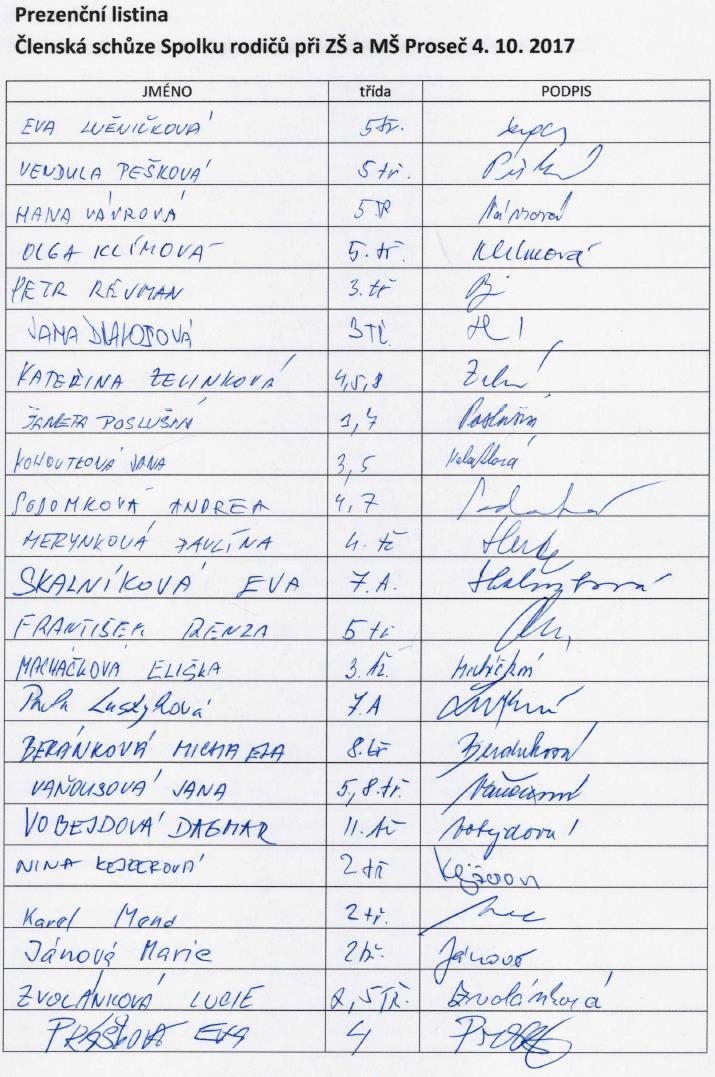 Prezenční listina
Členská schůze Spolku rodičů při ZŠ a MŠ Proseč 4. 10. 2017
JMÉNO třída PODPIS
EVA LUŇÁČKOVÁ 5 tř.
VENDULA PEŠKOVÁ 5 tř.
HANA VÁVROVÁ 5 TŘ Vávrová
OLGA KLÍMOVÁ 5. tř. Klímová
PETR REJMAN 3. tř
JANA 3 TŘ.
KATEŘINA ZELINKOVÁ 4,5,8
ŽANETA POSLUŠNÁ 1,7 Poslušná
KOHOUTKOVÁ JANA 3,5
SODOMKOVÁ ANDREA 4,7
MERYNKOVÁ PAVLÍNA 4. tř
SKALNÍKOVÁ EVA 7.A. Skalníková
FRANTIŠEK RENZA 5 tř
MACHÁČKOVÁ ELIŠKA 3. tř.
Pavla Lustyková 7.A
BERÁNKOVÁ MICHAELA 8. tř Beránková
VAŇOUSOVÁ JANA 5,8. tř. Vaňousová
VOBEJDOVÁ DAGMAR II. tř Vobejdová
NINA 2 tř
Karel Mend 2 tř.
Jánová Marie 2 tř. Jánová
ZVOLÁNKOVÁ LUCIE 2,5 TŘ. Zvolánková
PRÁŠKOVÁ EVA 4